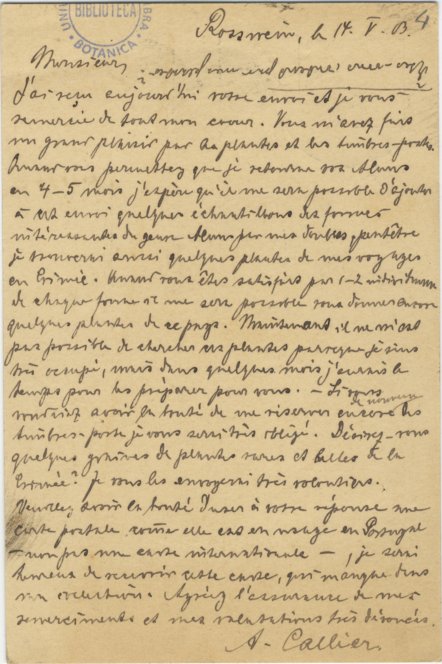 BIBLIOTECA
BOTANICA
Rosswein, le 14. V. 03.
4
Monsieur,
J'ai reçu aujourd'hui votre envoi et je vous
remercie de tout mon coeur. Vous m'avez fait
un grand plaisir par les plantes et les timbres-poste.
Quand vous permettez que je retourne vos Alnus
en 4-5 mois j'espère qu'il me sera possible d'ajouter
à cet envoi quelques échantillons des formes
intéressantes du genre Alnus par mes doubles, peutêtre
je trouverai aussi quelques plantes de mes voyages
en Crimée. Quand vous êtes satisfait par 1-2 individus
de chaque forme il me sera possible vous donner encore
quelques plantes de ce pays. Maintenant il ne m'est
pas possible de chercher ces plantes parceque je suis
très occupé, mais dans quelques mois j'aurais le
temps pour les préparer pour vous. - Si vous
de nouveau
voudriez avoir la bonté de me réserver encore des
timbres-poste je vous serai très obligé. Désirez-vous
quelques graines de plantes rares et belles de la
Crimée? je vous les enverrai très volontiers.
Veuillez avoir la bonté d'user à votre réponse une
carte postale comme elle est en usage en Portugal
- non pas une carte internationale -, je serai
heureux de recevoir cette carte, qui manque dans
ma collection. Agréez l'assurance de mes
remerciments et mes salutations très dévouées.
A. Callier.